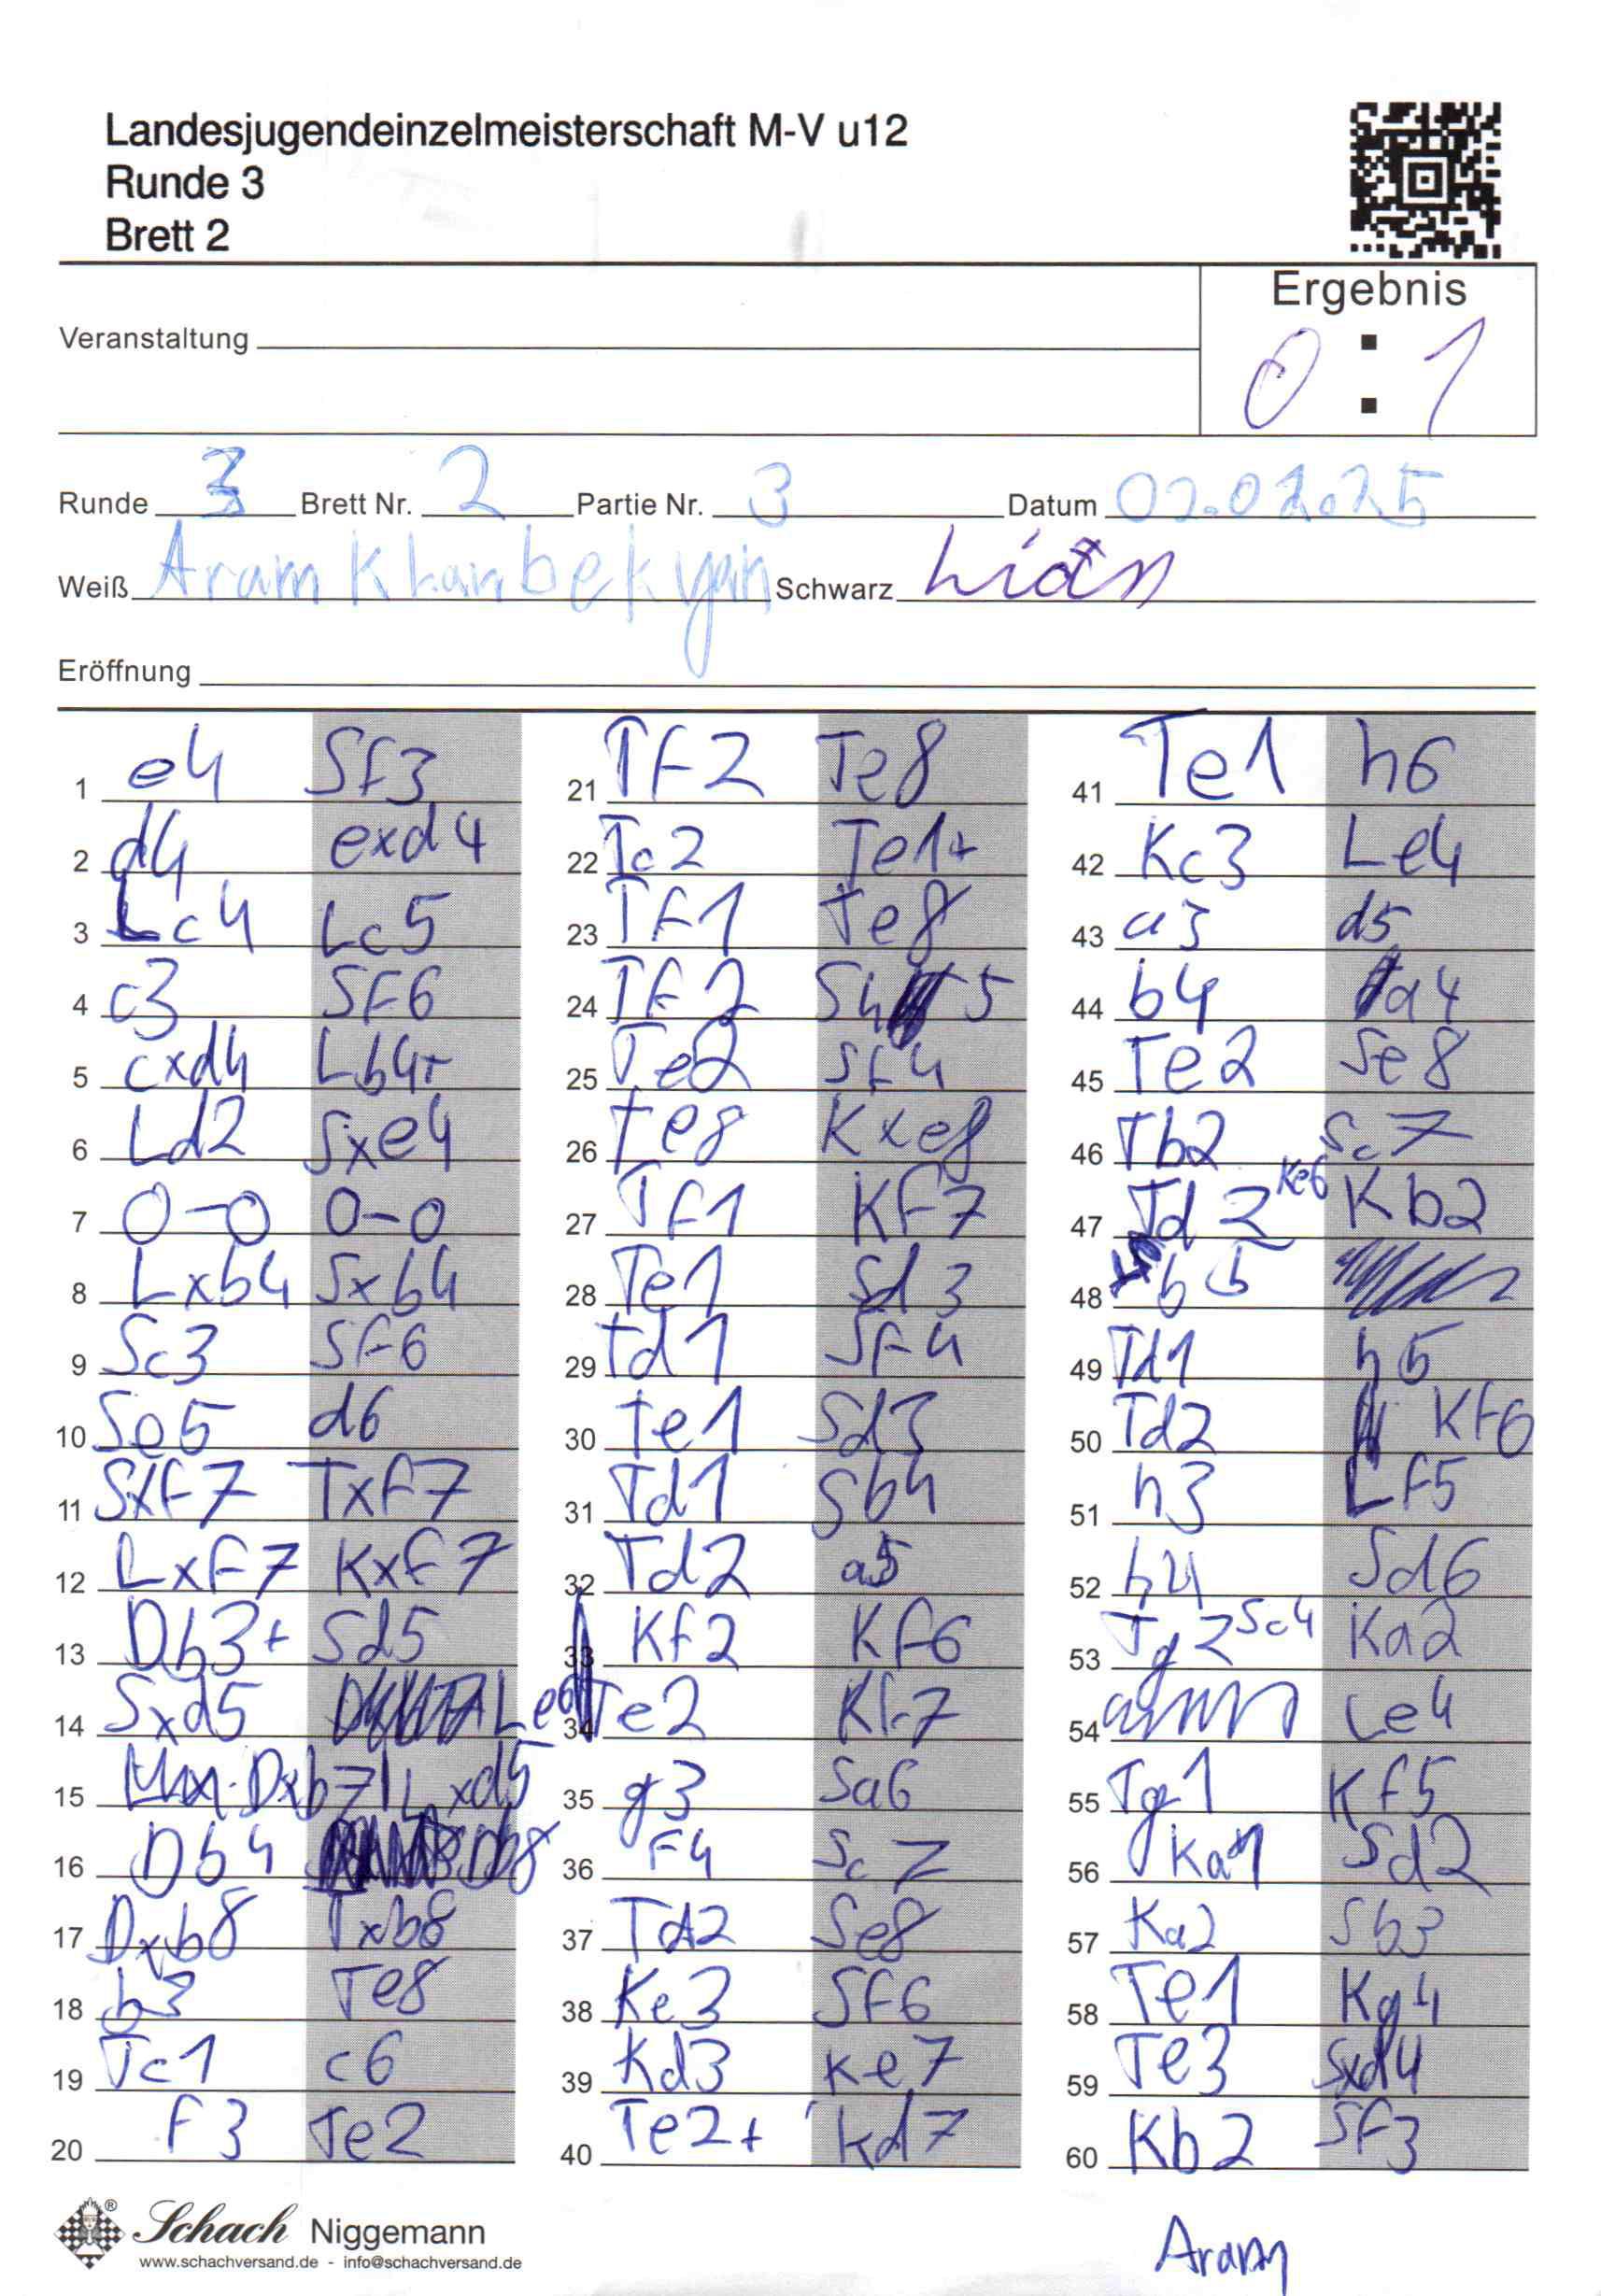 Landesjugendeinzelmeisterschaft M-V u12
Runde 3
Brett 2
Ergebnis
0 : 1
Veranstaltung
Runde 3 Brett Nr. 2 Partie Nr. 3 Datum
Weiß Aram Khanbekyan Schwarz
Eröffnung
1 e4 Sf3
2 d4 exd4
3 Lc4 Lc5
4 c3 SF6
5 cxd4 Lb4+
6 Ld2 Sxe4
7 0-0 0-0
8 Lxb4 Sxb4
9 Sc3 SF6
10 Se5 d6
11 SxF7 TxF7
12 LxF7 KxF7
13 Db3+ Sd5
14 Sxd5 Le6
15 Dxb7 Lxd5
16 Db4 Db8
17 Dxb8 Txb8
18 b3 Te8
19 Tc1 c6
20 F3 Te2
21 TF2 Te8
22 Tc2 Te1+
23 TF1 Te8
24 TF2 Sh5
25 Te2 SF4
26 te8 Kxe8
27 Tf1 KF7
28 Te1 Sd3
29 td1 SF4
30 te1 Sd3
31 Td1 Sb4
32 Td2 a5
33 Kf2 KF6
34 Te2 KF7
35 g3 Sa6
36 F4 Sc7
37 Td2 Se8
38 Ke3 SF6
39 Kd3 Ke7
40 Te2+ Kd7
41 Te1 h6
42 Kc3 Le4
43 a3 d5
44 b4 a4
45 Te2 Se8
46 Tb2 Sc7
47 Td2 Ke6 Kb2
48 b5
49 Td1 h5
50 Td2 Kf6
51 h3 Lf5
52 h4 Sd6
53 Tg2 Sc4 Ka2
54 Le4
55 Tg1 Kf5
56 Ka1 Sd2
57 Ka2 Sb3
58 Te1 Kg4
59 Te3 Sxd4
60 Kb2 SF3
Schach Niggemann
www.schachversand.de - info@schachversand.de
Aram